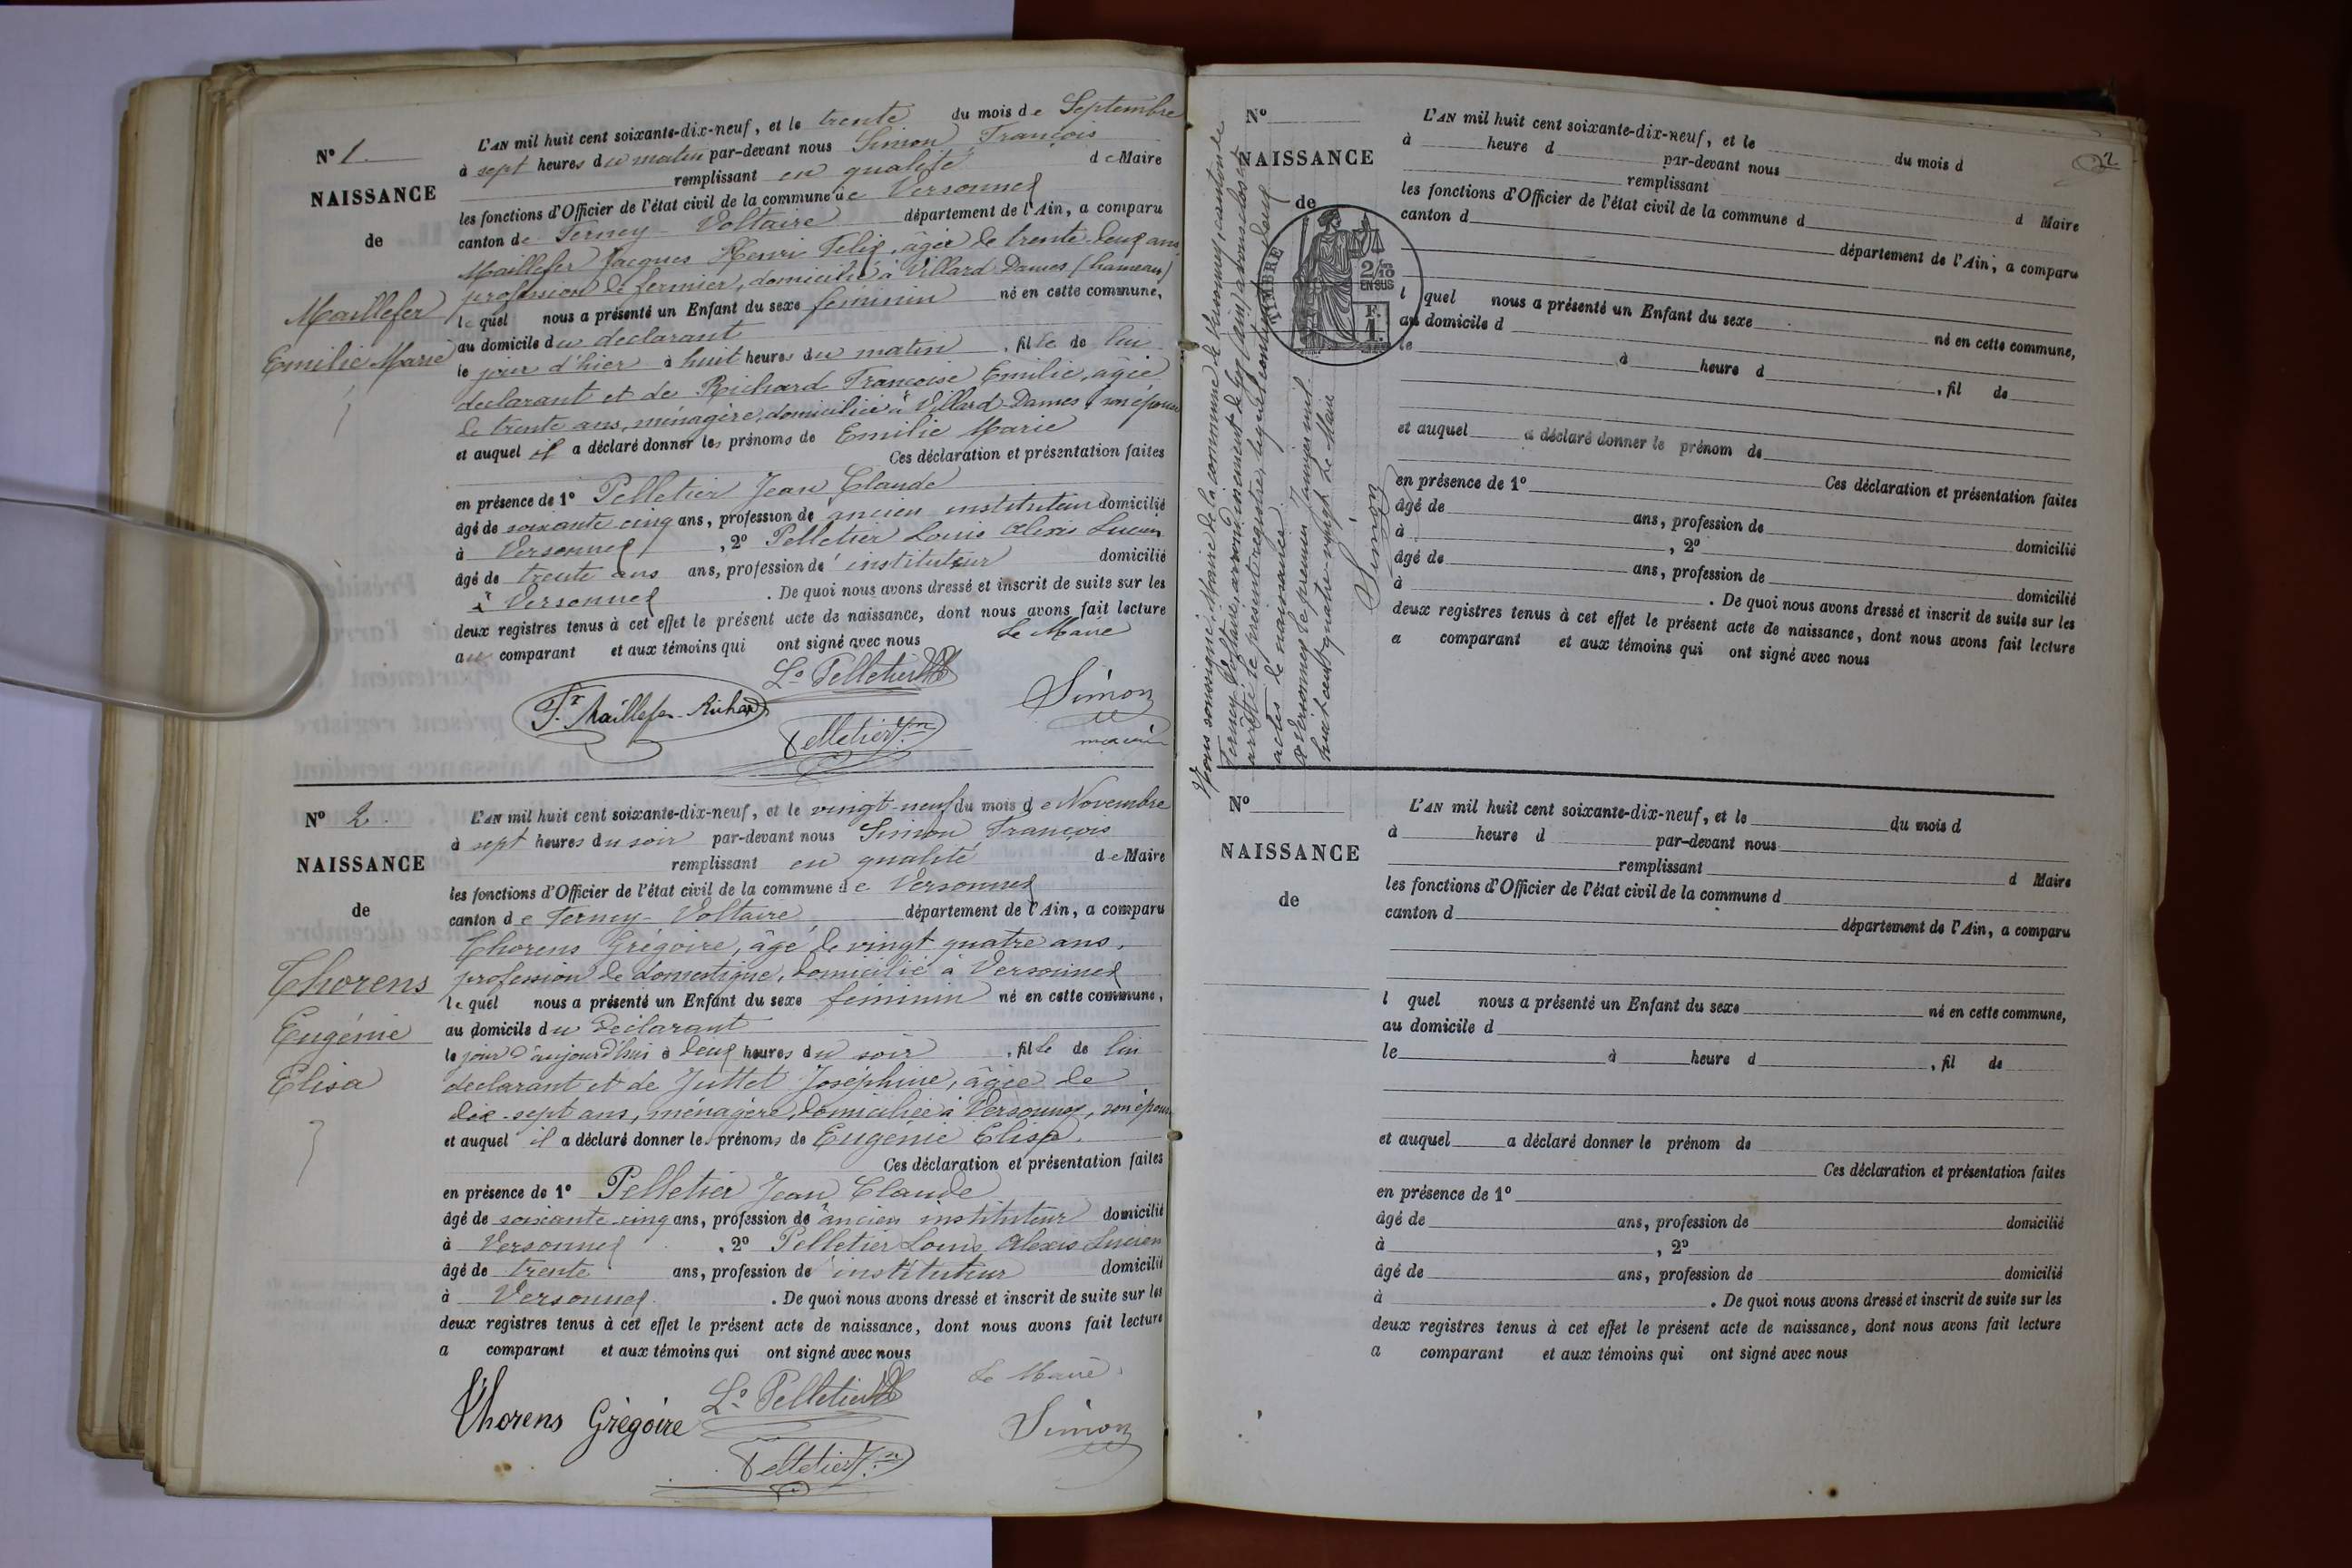 N° 1
NAISSANCE
de
Maillefer
Emilie Marie
L'AN mil huit cent soixante-dix-neuf, et le trente du mois de Septembre
à sept heures du matin par-devant nous Simon François
remplissant en qualité de Maire
les fonctions d'Officier de l'état civil de la commune de Versonnex
canton de Ferney-Voltaire département de l'Ain, a comparu
Maillefer Jacques Henri Félix, âgé de trente-deux ans
profession de fermier, domicilié à Villard-Dames (hameau)
lequel nous a présenté un Enfant du sexe féminin né en cette commune,
au domicile du déclarant
le jour d'hier à huit heures du matin, fille de lui
déclarant et de Richard Françoise Emilie, âgée
de trente ans, ménagère, domiciliée à Villard-Dames, son épouse
et auquel il a déclaré donner les prénoms de Emilie Marie
Ces déclaration et présentation faites
en présence de 1° Pelletier Jean Claude
âgé de soixante cinq ans, profession de ancien instituteur domicilié
à Versonnex, 2° Pelletier Louis Alexis Lucien
âgé de trente ans ans, profession de instituteur domicilié
à Versonnex. De quoi nous avons dressé et inscrit de suite sur les
deux registres tenus à cet effet le présent acte de naissance, dont nous avons fait lecture
au comparant et aux témoins qui ont signé avec nous Le Maire
Ls Pelletier
Maillefer-Richard Simon
Pelletier Jn maire
N° 2
NAISSANCE
de
Thorens
Eugénie
Elisa
L'AN mil huit cent soixante-dix-neuf, et le vingt-neuf du mois de Novembre
à sept heures du soir par-devant nous Simon François
remplissant en qualité de Maire
les fonctions d'Officier de l'état civil de la commune de Versonnex
canton de Ferney-Voltaire département de l'Ain, a comparu
Thorens Grégoire, âgé de vingt quatre ans,
profession de domestique, domicilié à Versonnex
lequel nous a présenté un Enfant du sexe féminin né en cette commune,
au domicile du déclarant
le jour d'aujourd'hui à deux heures du soir, fille de lui
déclarant et de Juttet Joséphine, âgée de
dix-sept ans, ménagère, domiciliée à Versonnex, son épouse
et auquel il a déclaré donner les prénoms de Eugénie Elisa.
Ces déclaration et présentation faites
en présence de 1° Pelletier Jean Claude
âgé de soixante-cinq ans, profession de ancien instituteur domicilié
à Versonnex, 2° Pelletier Louis Alexis Lucien
âgé de trente ans, profession de instituteur domicilié
à Versonnex. De quoi nous avons dressé et inscrit de suite sur les
deux registres tenus à cet effet le présent acte de naissance, dont nous avons fait lecture
a comparant et aux témoins qui ont signé avec nous
Le Maire
Ls Pelletier
Thorens Grégoire Simon
Pelletier Jn
2
N°
NAISSANCE
de
TIMBRE
2/10
EN SUS
F.
1.
Nous soussigné, Maire de la commune de Versonnex, canton de
Ferney-Voltaire, arrondissement de Gex (Ain) avons clos et
arrêté le présent registre, lequel contient deux
actes de naissance.
A Versonnex le premier Janvier mil
huit cent quatre-vingt. Le Maire
Simon
L'AN mil huit cent soixante-dix-neuf, et le du mois d
à heure d par-devant nous
remplissant d Maire
les fonctions d'Officier de l'état civil de la commune d
canton d département de l'Ain, a comparu
l quel nous a présenté un Enfant du sexe né en cette commune,
au domicile d
le à heure d, fil de
et auquel a déclaré donner le prénom de
Ces déclaration et présentation faites
en présence de 1°
âgé de ans, profession de domicilié
à, 2°
âgé de ans, profession de domicilié
à. De quoi nous avons dressé et inscrit de suite sur les
deux registres tenus à cet effet le présent acte de naissance, dont nous avons fait lecture
a comparant et aux témoins qui ont signé avec nous
N°
NAISSANCE
de
L'AN mil huit cent soixante-dix-neuf, et le du mois d
à heure d par-devant nous
remplissant d Maire
les fonctions d'Officier de l'état civil de la commune d
canton d département de l'Ain, a comparu
l quel nous a présenté un Enfant du sexe né en cette commune,
au domicile d
le à heure d, fil de
et auquel a déclaré donner le prénom de
Ces déclaration et présentation faites
en présence de 1°
âgé de ans, profession de domicilié
à, 2°
âgé de ans, profession de domicilié
à. De quoi nous avons dressé et inscrit de suite sur les
deux registres tenus à cet effet le présent acte de naissance, dont nous avons fait lecture
a comparant et aux témoins qui ont signé avec nous